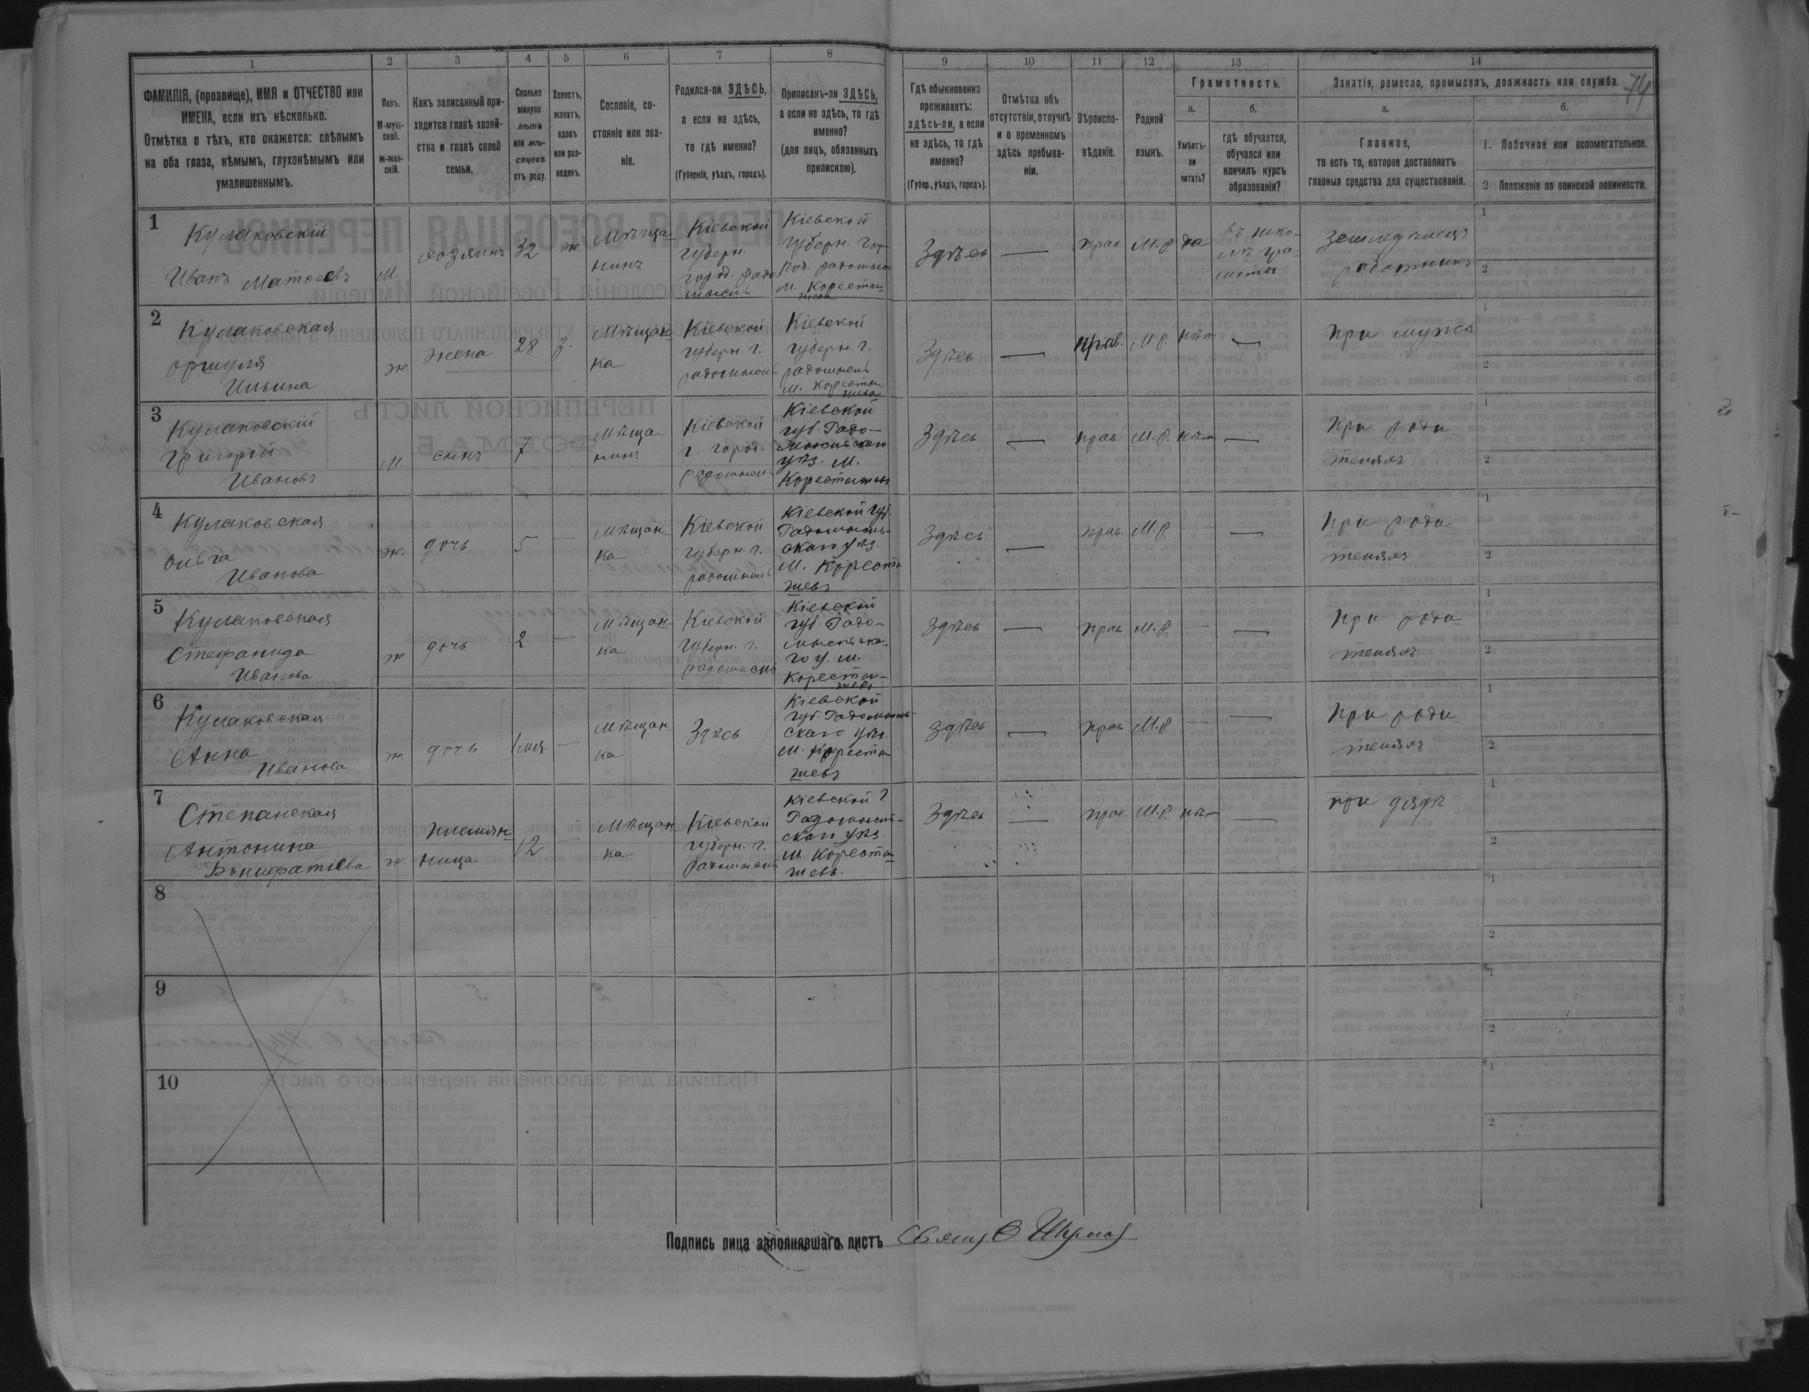 74
1 2 3 4 5 6 7 8 9 10 11 12 13 14
ФАМИЛІЯ, (прозвище), ИМЯ и ОТЧЕСТВО или
ИМЕНА, если ихъ нѣсколько.
Отмѣтка о тѣхъ, кто окажется: слѣпымъ
на оба глаза, нѣмымъ, глухонѣмымъ или
умалишеннымъ.
Полъ.
М-муж-
ской.
Ж-жен-
скій.
Какъ записанный при-
ходится главѣ хозяй-
ства и главѣ своей
семьи.
Сколько
минуло
лѣтъ
или мѣ-
сяцевъ
отъ роду.
Холостъ,
женатъ,
вдовъ
или раз-
веденъ.
Сословіе, со-
стояніе или зва-
ніе.
Родился-ли ЗДѢСЬ,
а если не здѣсь,
то гдѣ именно?
(Губернія, уѣздъ, городъ).
Приписанъ-ли ЗДѢСЬ,
а если не здѣсь, то гдѣ
именно?
(для лицъ, обязанныхъ
припискою).
Гдѣ обыкновенно
проживаетъ:
здѣсь-ли, а если
не здѣсь, то гдѣ
именно?
(Губер., уѣздъ, городъ).
Отмѣтка объ
отсутствіи, отлучкѣ
и о временномъ
здѣсь пребыва-
ніи.
Вѣроиспо-
вѣданіе.
Родной
языкъ.
Грамотность.
а.
Умѣетъ-
ли
читать?
б.
гдѣ обучается,
обучался или
кончилъ курсъ
образованія?
Занятія, ремесло, промыселъ, должность или служба.
а.
Главное,
то есть то, которое доставляетъ
главныя средства для существованія.
б.
1. Побочное или вспомогательное.
2 Положеніе по воинской повинности.
1
Кулаковскій
Иванъ Матоеевъ
М.
хозяинъ
32
ж
Мѣща
нинъ
Кіевской
губерн.
город. Радо
мысль
Кіевской
губерн. гор
М. Коросты
шевъ
Здѣсь
—
прав
М.Р.
да
земледѣлецъ
работникъ
1
2
2
Кулаковская
Ильина
ж
жена
28
з.
Мѣщан
ка
Кіевской
губерн. г.
радомысль
Кіевской
губерн. г.
радомысль
м. Коросты
шевъ
Здѣсь
—
прав.
М.Р.
нѣт
—
при мужѣ
1
2
3
Кулаковскій
Григорій
Ивановъ
М.
сынъ
7
Мѣща
нинъ
Кіевской
г. город.
радомысль
Кіевской
губ. Радо-
мысльскаго
уѣз. М.
Коростышевъ
Здѣсь
—
прав
М.Р.
нѣт
—
при роди
теляхъ
1
2
4
Кулаковская
Ольга
Иванова
ж.
дочь
5
—
Мѣщан
ка
Кіевской
губерн. г.
радомысль
Кіевской губ
Радомысль-
скаго уѣз.
М. Коросты
шевъ
Здѣсь
—
прав
М.Р.
—
—
при роди
теляхъ
1
2
5
Кулаковская
Стефанида
Иванова
ж
дочь
2
—
Мѣщан
ка
Кіевской
губерн. г.
радомысль
Кіевской
губ Радо-
мысльска-
го у. м.
Коросты-
шевъ
Здѣсь
—
прав
М.Р.
—
—
при роди
теляхъ
1
2
6
Кулаковская
Анна
Иванова
ж
дочь
1 мѣя
—
Мѣщан
ка
Здѣсь
Кіевской
губ. Радомысль-
скаго уѣз.
м. Коросты
шевъ
Здѣсь
—
прав
М.Р.
—
—
при роди
теляхъ
1
2
7
Степанская
Антонина
ж
племян
ница
12
—
Мѣщан
ка
Кіевской
губерн. г.
радомысль
Кіевской г
Радомысль-
скаго уѣз.
м. Коросты
шевъ.
Здѣсь
—
прав.
М.Р.
нѣт
—
при дядѣ
1
2
8
1
2
9
1
2
10
1
2
Подпись лица заполнявшаго листъ